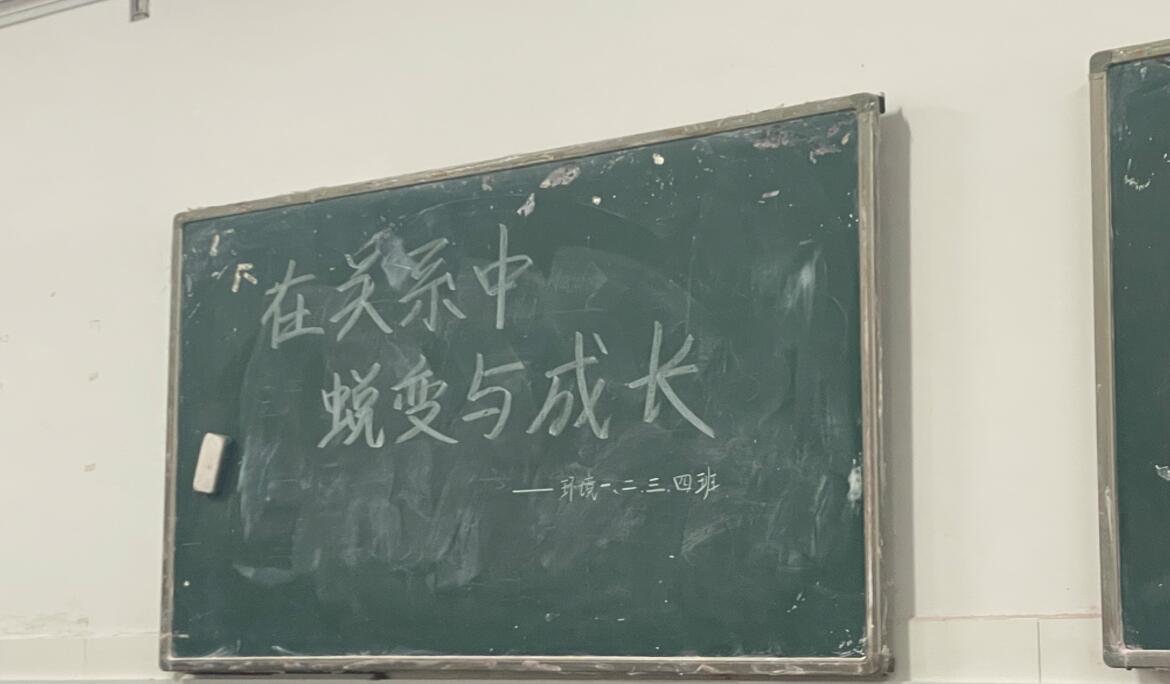 在关系中
蜕变与成长
——环境一、二、三、四班